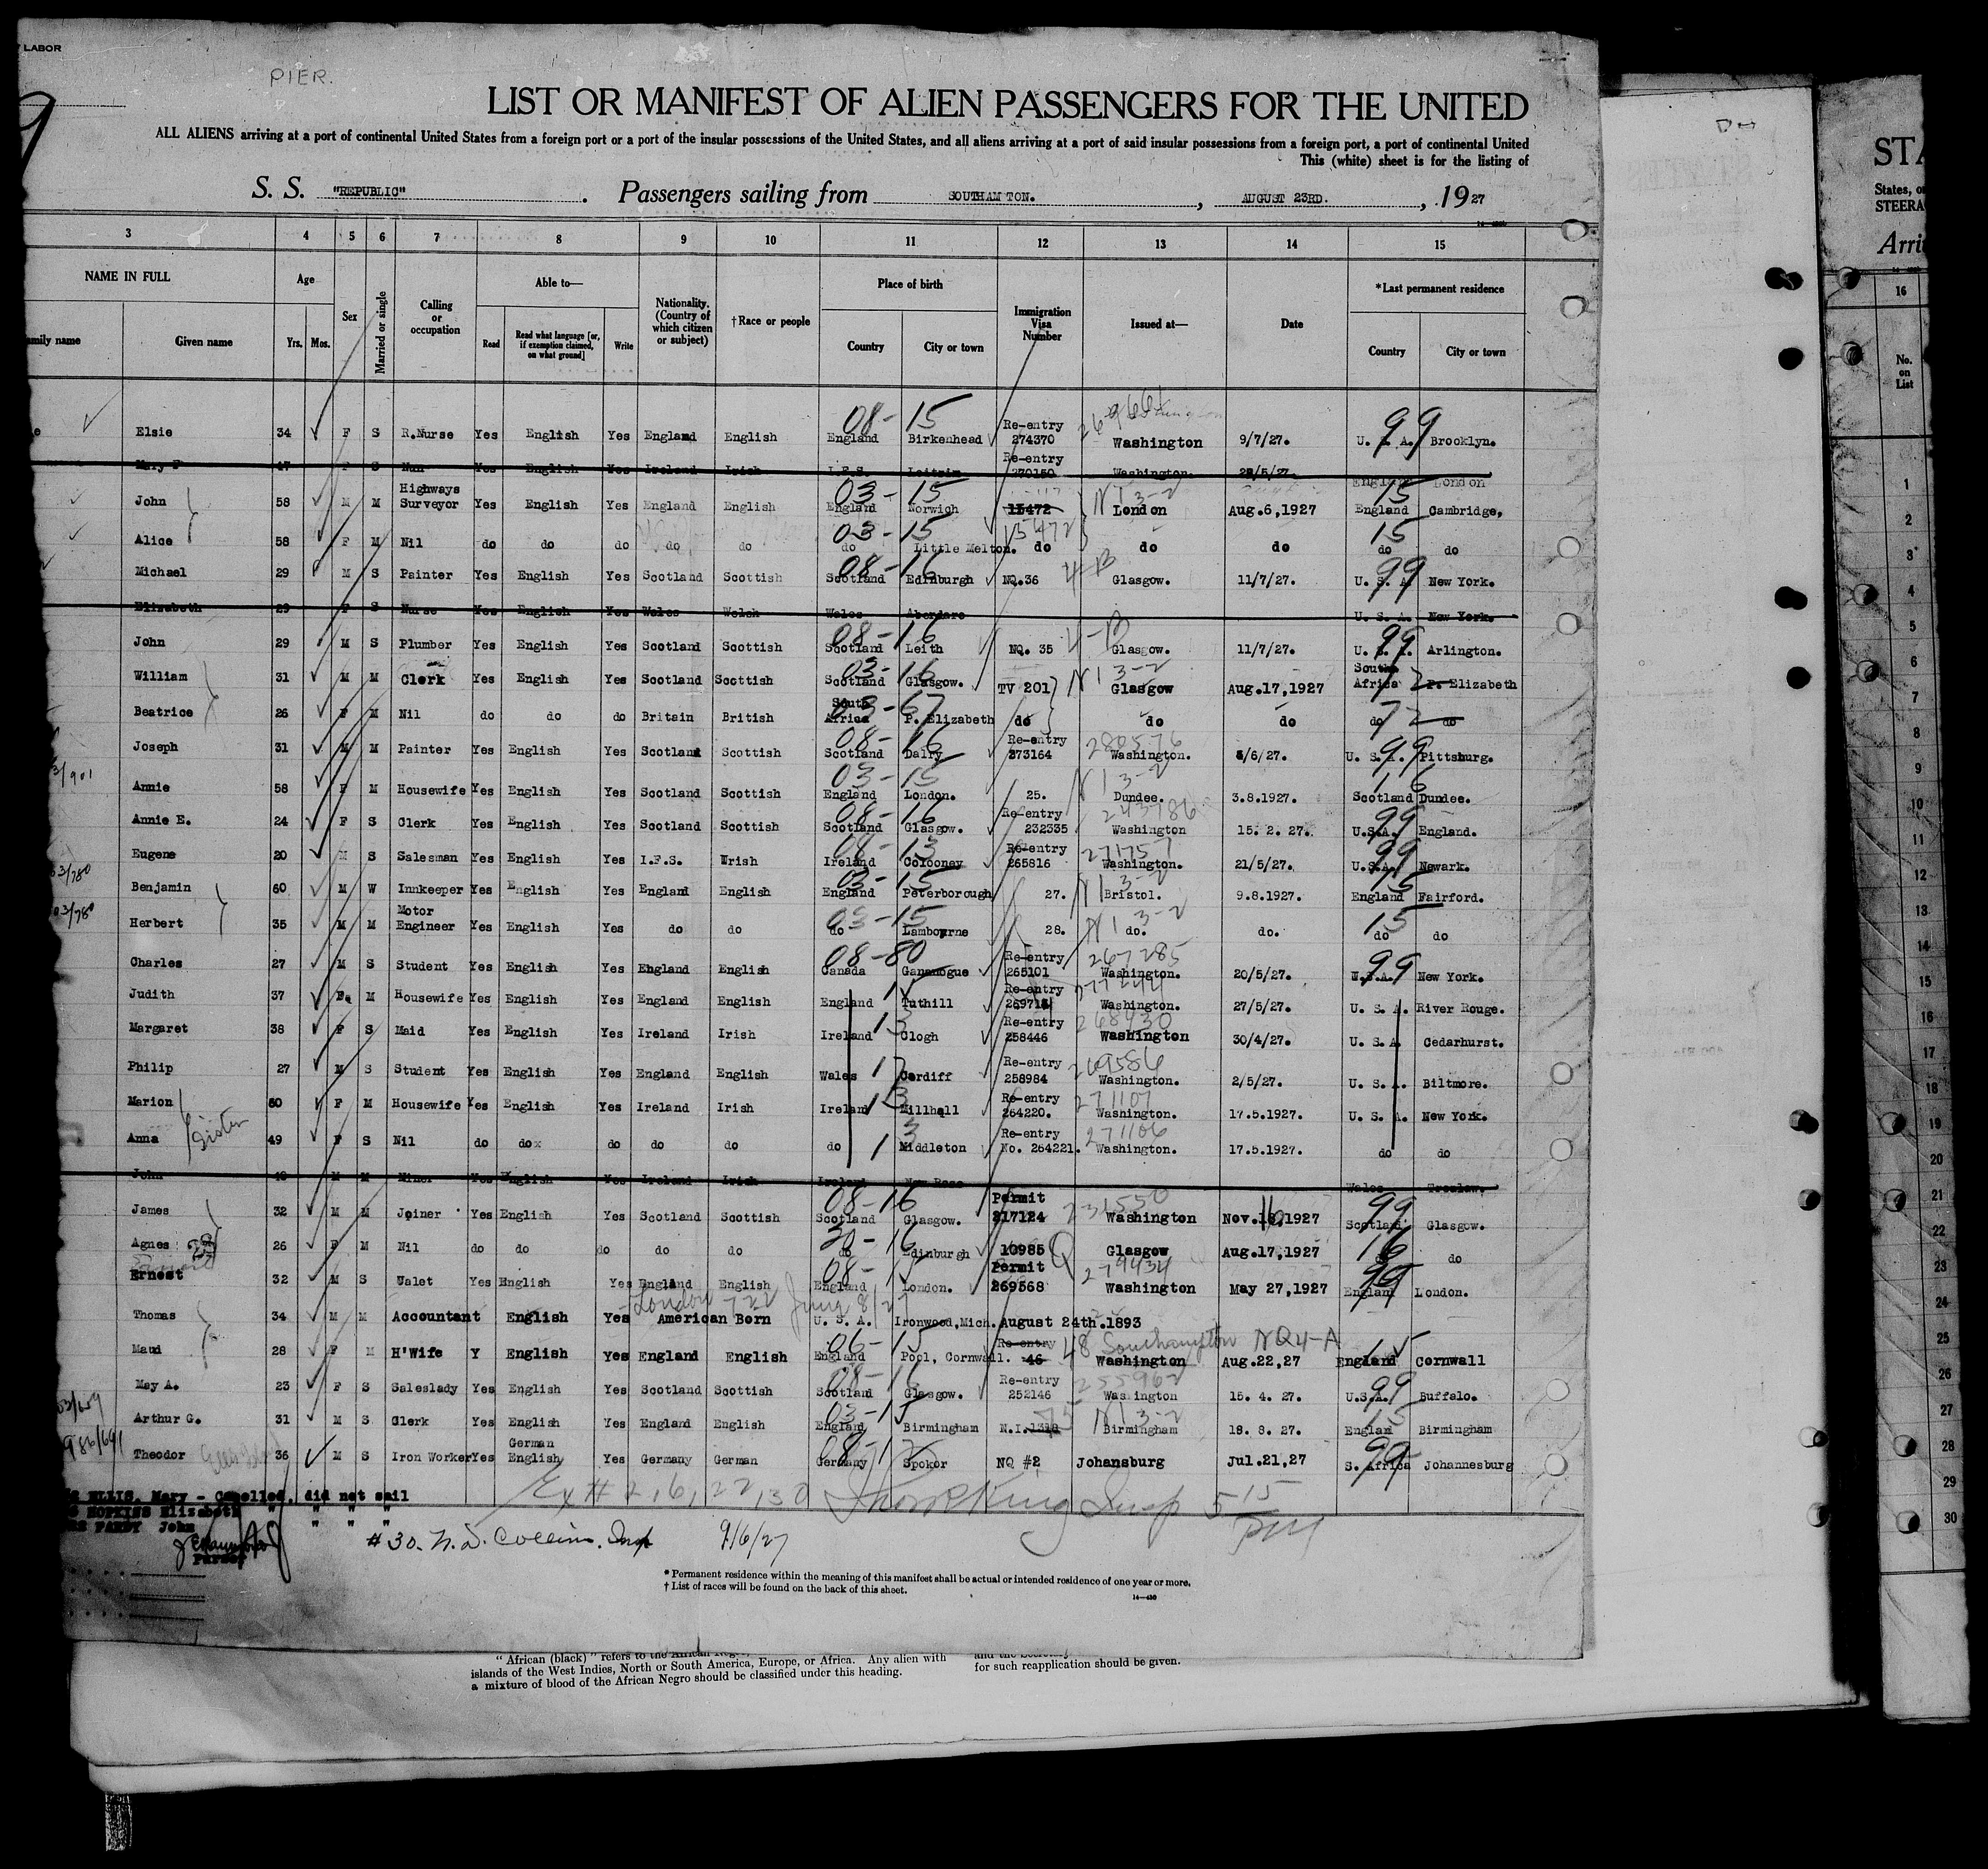 LABOR
PIER.
LIST OR MANIFEST OF ALIEN PASSENGERS FOR THE UNITED
ALL ALIENS arriving at a port of continental United States from a foreign port or a port of the insular possessions of the United States, and all aliens arriving at a port of said insular possessions from a foreign port, a port of continental United
This (white) sheet is for the listing of
S. S. "REPUBLIC". Passengers sailing from SOUTHAM TON., AUGUST 23RD., 1927
3 4 5 6 7 8 9 10 11 12 13 14 15
NAME IN FULL Age Sex Married or single Calling or occupation Able to— Nationality. (Country of which citizen or subject) †Race or people Place of birth Immigration Visa Number Issued at— Date *Last permanent residence
Given name Yrs. Mos. Read Read what language [or, if exemption claimed, on what ground] Write Country City or town Country City or town
Elsie 34 F S R.Nurse Yes English Yes England English England Birkenhead Re-entry 274370 Washington 9/7/27. U. S. A. Brooklyn.
Mary F S Nun Yes English Yes Ireland Irish I.F.S. Leitrim Re-entry 270150 Washington. England London
John 58 M M Highways Surveyor Yes English Yes England English England Norwich 15472 London Aug.6,1927 England Cambridge,
Alice 58 F M Nil do do do do do do Little Melton. 15472 do do do do do
Michael 29 M S Painter Yes English Yes Scotland Scottish Scotland Edinburgh NQ.36 Glasgow. 11/7/27. U. S. A. New York.
Elizabeth 29 F S Nurse Yes English Yes Wales Welsh Wales Aberdare U. S. A. New York.
John 29 M S Plumber Yes English Yes Scotland Scottish Scotland Leith NQ. 35 Glasgow. 11/7/27. U. S. A. Arlington.
William 31 M M Clerk Yes English Yes Scotland Scottish Scotland Glasgow. TV 201 Glasgow Aug.17,1927 South Africa P. Elizabeth
Beatrice 26 F M Nil do do do Britain British South Africa P. Elizabeth do do do do do
Joseph 31 M M Painter Yes English Yes Scotland Scottish Scotland Dalry Re-entry 273164 280576 Washington. 6/27. U. S. A. Pittsburg.
Annie 58 F M Housewife Yes English Yes Scotland Scottish England London. 25. Dundee. 3.8.1927. Scotland Dundee.
Annie E. 24 F S Clerk Yes English Yes Scotland Scottish Scotland Glasgow. Re-entry 232335 243786 Washington 15. 2. 27. U.S.A. England.
Eugene 20 M S Salesman Yes English Yes I.F.S. Wrish Ireland Colooney Re-entry 265816 271757 Washington. 21/5/27. U.S.A. Newark.
Benjamin 60 M W Innkeeper Yes English Yes England English England Peterborough 27. Bristol. 9.8.1927. England Fairford.
Herbert 35 M M Motor Engineer Yes English Yes do do do Lambourne 28. do. do. do do
Charles 27 M S Student Yes English Yes England English Canada Gananogue Re-entry 265101 267285 Washington. 20/5/27. U.S.A. New York.
Judith 37 F M Housewife Yes English Yes England English England Tuthill Re-entry Washington. 27/5/27. U. S. A. River Rouge.
Margaret 38 F S Maid Yes English Yes Ireland Irish Ireland Clogh Re-entry 258446 268430 Washington 30/4/27. U. S. A. Cedarhurst.
Philip 27 M S Student Yes English Yes England English Wales Cardiff Re-entry 258984 269586 Washington. 2/5/27. U. S. A. Biltmore.
Marion 50 F M Housewife Yes English Yes Ireland Irish Ireland Millhall Re-entry 264220. 271107 Washington. 17.5.1927. U. S. A. New York.
Anna Sister 49 F S Nil do do do do do do Middleton Re-entry No. 264221. 271106 Washington. 17.5.1927. do do
John M M Miner Yes English Yes Ireland Irish Ireland New Ross Wales
James 32 M M Joiner Yes English Yes Scotland Scottish Scotland Glasgow. Permit 217124 231550 Washington Nov.16,1927 Scotland Glasgow.
Agnes 26 F M Nil do do do do do do Edinburgh 10985 Q Glasgow Aug.17,1927 do
Ernest 32 M S Valet Yes English Yes England English England London. Permit 269568 279434 Washington May 27,1927 England London.
Thomas 34 M M Accountant English Yes American Born U. S. A. Ironwood,Mich. August 24th.1893
Maud 28 F M H'Wife Y English Yes England English England Pool, Cornwall. Re-entry 46 48 Southampton NQ4-A Washington Aug.22,27 England Cornwall
May A. 23 F S Saleslady Yes English Yes Scotland Scottish Scotland Glasgow. Re-entry 252146 255962 Washington 15. 4. 27. U.S.A. Buffalo.
Arthur G. 31 M S Clerk Yes English Yes England English England Birmingham N.I. Birmingham 18. 8. 27. England Birmingham
Theodor 36 M S Iron Worker Yes German English Yes Germany German Germany Spokor NQ #2 Johansburg Jul.21,27 S. Africa Johannesburg
ELLIS, Mary - Cancelled, did not sail
HOPKINS Elizabeth " " "
PARDY John " " "
Purser
Ex # 2, 6, 22, 30
#30. N. D. Collins. Insp 9/6/27
* Permanent residence within the meaning of this manifest shall be actual or intended residence of one year or more.
† List of races will be found on the back of this sheet.
14—430
"African (black)" refers to the African Negro,
islands of the West Indies, North or South America, Europe, or Africa. Any alien with
a mixture of blood of the African Negro should be classified under this heading.
for such reapplication should be given.
STA
States, o
STEERA
Arri
16
No. on List
1
2
3
4
5
6
7
8
9
10
11
12
13
14
15
16
17
18
19
20
21
22
23
24
25
26
27
28
29
30